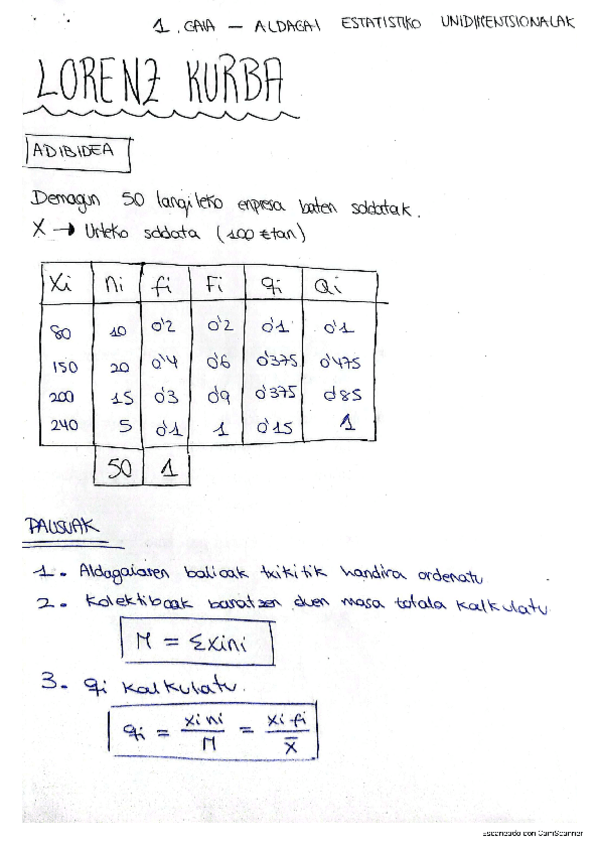 1. GAIA — ALDAGAI ESTATISTIKO UNIDIMENTSIONALAK
LORENZ KURBA
ADIBIDEA
Demagun 50 langileko enpresa baten soldatak.
X → Urteko soldata (100€tan)
Xi ni fi Fi qi Qi
80 10 0'2 0'2 0'1 0'1
150 20 0'4 0'6 0'375 0'475
200 15 0'3 0'9 0'375 0'85
240 5 0'1 1 0'15 1
50 1
PAUSUAK
1. Aldagaiaren balioak txikitik handira ordenatu
2. Kolektiboak banatzen duen masa totala kalkulatu
M = Σxini
3. qi kalkulatu.
qi = xi ni / M = xi fi / x̄
Escaneado con CamScanner